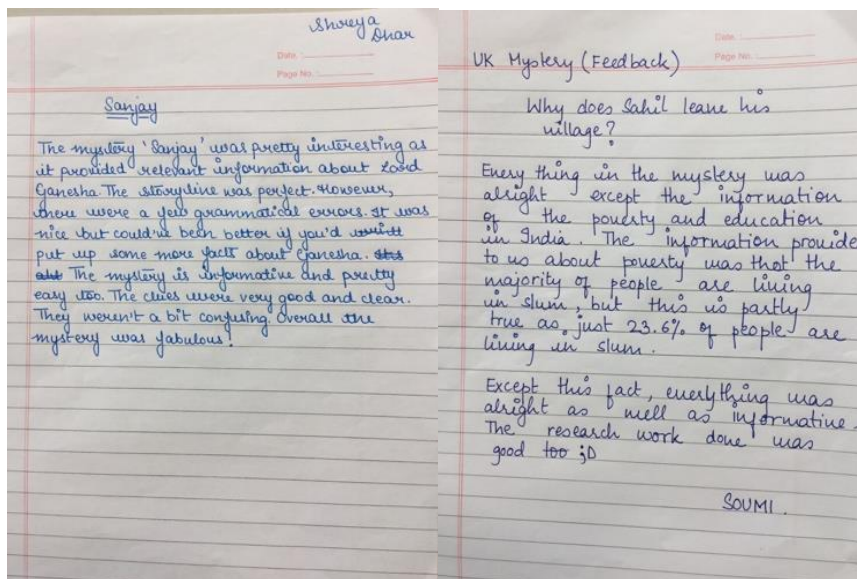 Shreya
Dhar
Date. :
Page No. :
Sanjay
The mystery 'Sanjay' was pretty interesting as
it provided relevant information about Lord
Ganesha. The storyline was perfect. However,
there were a few grammatical errors. It was
nice but could've been better if you'd
put up some more facts about Ganesha.
The mystery is informative and pretty
easy too. The clues were very good and clear.
They weren't a bit confusing. Overall the
mystery was fabulous!
Date. :
Page No. :
UK Mystery (Feedback)
Why does Sahil leave his
village?
Every thing in the mystery was
alright except the information
of the poverty and education
in India. The information provide
to us about poverty was that the
majority of people are living
in slum, but this is partly
true as just 23.6% of people are
living in slum.
Except this fact, everything was
alright as well as informative.
The research work done was
good too ;D
SOUMI.